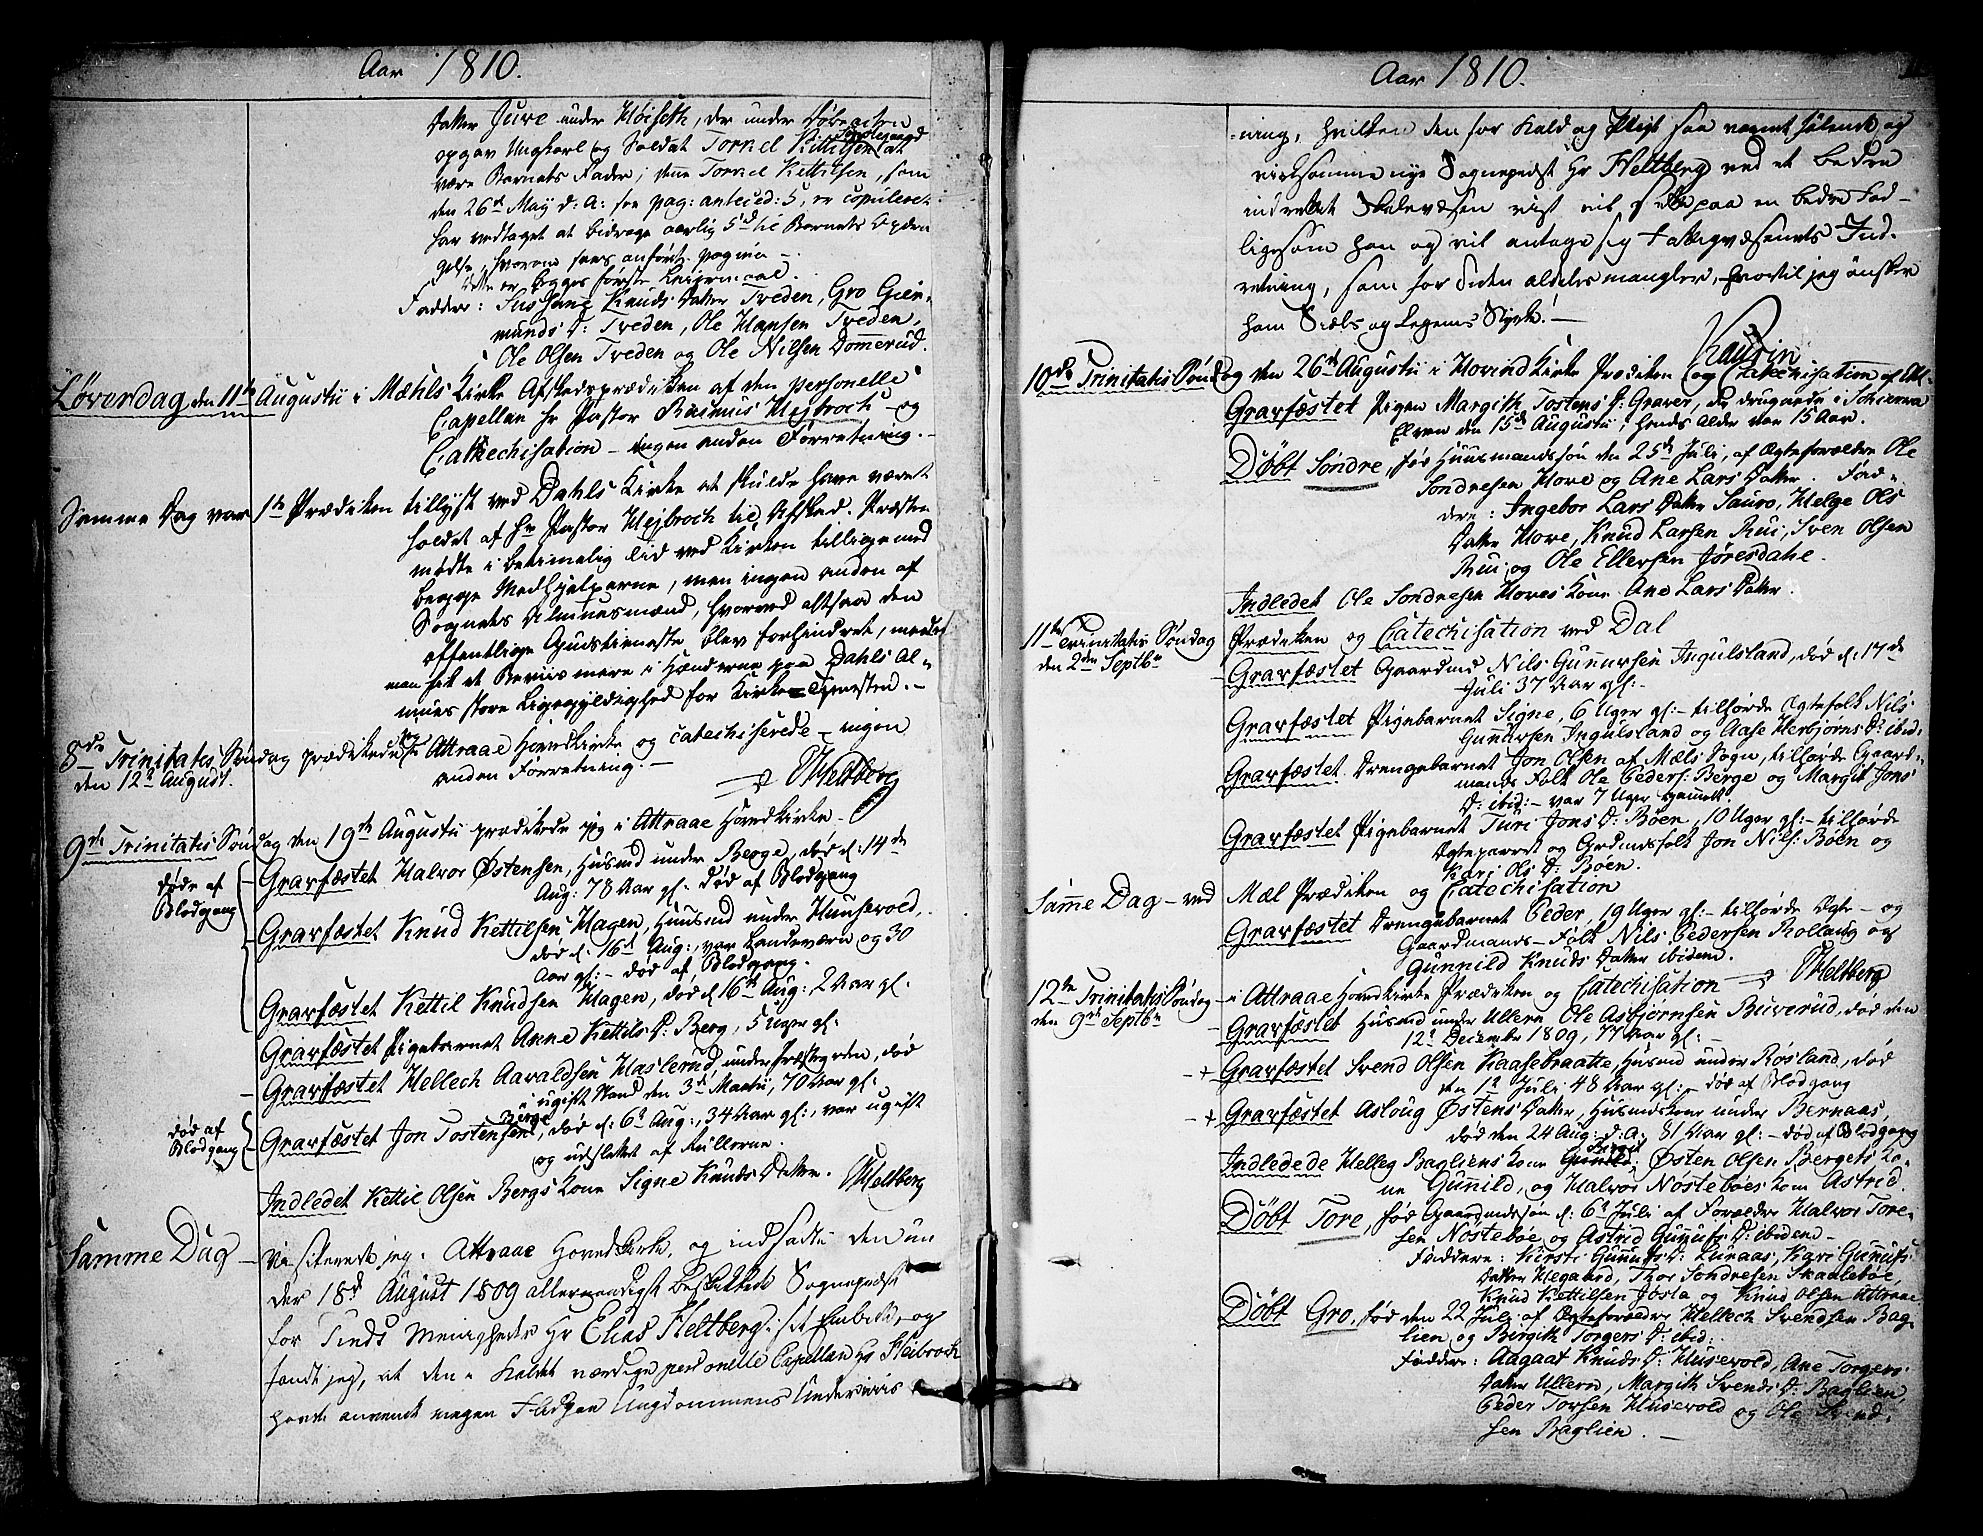 Aar 1810.
datter Juve under Høiseth, der under Døbeacten
opgav Ungkarl og Soldat Torkel Kittilsen at
være Barnets Fader; denne Torkel Kettilsen, som
den 26de May d: A: see pag: anteced: 5, er copuleret
har vedtaget at bidrage aarlig 5 d til Barnets Opdra
gelse, hvorom sees anførte pagina –
Dette er begges første Leiermaal.
Faddere: Susanne Knuds Datter Tveden, Gro Giér-
munds D: Tveden, Ole Hansen Tveden,
Ole Olsen Tveden og Ole Nilsen Domerud.
Løverdag den 11te Augustii i Mæhls Kirke Afskedsprædiken af den personelle
Capellan hr Pastor Rasmus Hejbroch og
Catechisation – ingen anden Forretning. –
Samme Dag var 1te Prædiken tillyst ved Dahls Kirke at skulde have været
holdet af Hr Pastor Hejbroch til Afsked. Præsten
mødte i betimelig tid ved Kirken tillige med
begge Medhjelperne, men ingen anden af
Sognets Almuesmænd, hvorved altsaa den
offentlige Gudstieneste blev forhindret,
man fik et Beviis mere i Hænderne paa Dahls Al-
mues store Ligegyldighed for Kirke-Tjenesten. –
8de Trinitatis Søndag prædikede jeg i Attraae Hovedkirke og catechiserede – ingen
den 12te August. anden Forretning. –
Heltberg
9de Trinitatis Søndag den 19te Augustii prædikede jeg i Attraae Hovedkirke –
døde af
Blodgang
Gravfæstet Halvor Østensen, Husmd under Berge, død d: 14de
Aug: 78 Aar gl: død af Blodgang
Gravfæstet Knud Kettilsen Hagen, Huusmd under Huusevold,
død d: 16de Aug:, var Landeværn og 30
Aar gl: – død af Blodgang.
Gravfæstet Kettil Knudsen Hagen, død d 16de Aug: 2 Aar gl:
Gravfæstet Pigebarnet Anne Kettils D: Berg, 5 Uger gl:
Gravfæstet Hellech Aavaldsen Haslerud, under Præstegrden, død
i ugift Stand den 3de Martii, 70 Aar gl:
død af
Blodgang
Gravfæstet Jon Tostensen Berge, død d: 6te Aug:, 34 Aar gl:, var ugift
og udslettet af Rullerne.
Indledet Kettil Olsen Bergs kone Signe Knuds Datter. Heltberg
Samme Dag – Visiterede jeg i Attraae Hovedkirke, og indsatte den un
der 18de August 1809 allernaadigst beskikkede Sognepræst
for Tinds Menighed Hr Elias Heltberg i sit Embede, og
fandt jeg, at den i Kaldet værdige personelle Capellan Hr Heibroch
havde anvendt megen Flid paa Ungdommens Underviis
Aar 1810.
ning, hvilken den for Kald og Pligt saa varmt følende og
virksomme nye Sognepræst Hr Heltberg ved et bedre
indrettet Skolevæsen vist vil sætte paa en bedre Fod –
ligesom han og vil antage sig Fattigvæsenets Ind-
retning, som for Tiden aldeles mangler, hvortil jeg ønsker
ham Siæls og Legems Styrke! –
Kaurin
10de Trinitatis Søndag den 26de Augustii i Hovind Kirke Prædiken og Catechisation
Gravfæstet Pigen Margith Tostens D: Graver, der druknede i
Elven den 15de Augustii, hends Alder var 15 Aar.
Døbt Søndre, fød Huusmandssøn den 25de Juli, af Ægteforældre Ole
Søndresen Hove og Ane Lars Datter. Fad-
dere: Ingebor Lars Datter Sauro, Helge Ols
Datter Hove, Knud Larsen Rui, Sven Olsen
Rui og Ole Ellevsen Jøresdahl.
Indledet Ole Søndresen Hoves kone Ane Lars Datter.
11te Trinitatis Søndag Prædiken og Catechisation ved Dal
den 2den Septbr
Gravfæstet Gaardmd Nils Gunnursen Ingulsland, død d: 17de
Juli 37 Aar gl: –
Gravfæstet Pigebarnet Signe, 6 Uger gl: – tilhørde Ægtefolk Nils
Gunnursen Ingulsland og Aase Herbjørns D: ibid:
Gravfæstet Drengebarnet Jon Olsen af Mæls Sogn, tilhørde Gaard-
mands Folk Ole Peders: Berge og Margit Jons
D: ibid: – var 7 Uger gammelt.
Gravfæstet Pigebarnet Turi Jons D: Bøen, 10 Uger gl: – tilhørde
Ægteparret og Grdmdsfolk Jon Nils: Bøen og
Kari Ols D: Bøen.
Samme Dag – ved Mæl Prædiken og Catechisation
Gravfæstet Drengebarnet Peder, 19 Uger gl: – tilhørde Ægte – og
Gaardmands – Folk Nils Pedersen Rollaug og
Gunnild Knuds Datter ibidem. Heltberg
12te Trinitatis Søndag – i Attraae Hovedkirke Prædiken og Catechisation
den 9de Septbr
Gravfæstet Husmd under Ullern Ole Asbjørnsen Buverud, død den
12te December 1809, 77 Aar gl: –
– + Gravfæstet Svend Olsen Kaasebraatte, Husmd under Røsland, død
den 1te Juli 48 Aar gl: – død af Blodgang
– + Gravfæstet Asloug Østens Datter, Husmdskone under Bernaas,
død den 24 Aug: d: A: 81 Aar gl: – død af Blodgang
Indledede Helleg Bagliens kone Birgit, Østen Olsen Bergets Ko-
ne Gunnild, og Halvor Nostebøes kone Astrid.
Døbt Tore, fød Gaardmdssøn d: 6te Juli af Forældre Halvor Tore-
sen Nostebøe og Astrid Gunnufs D: ibidem –
Faddere: Kirsti Gunnufs D: Lunaas, Kari Gunnufs
datter Hegaard, Thor Søndresen Skaalebøe,
Knud Kettilsen Jøsla og Knud Olsen Attraae
Døbt Gro, fød den 22 Juli af Ægteforældre Hellech Svendsen Bag-
lien og Birgith Torgers D: ibid:
Faddere: Aagaat Knuds D: Husevold, Ane Torgers
datter Ullern, Margith Svends D: Baglien,
Peder Torsen Husevold og Ole Svend-
sen Baglien. –